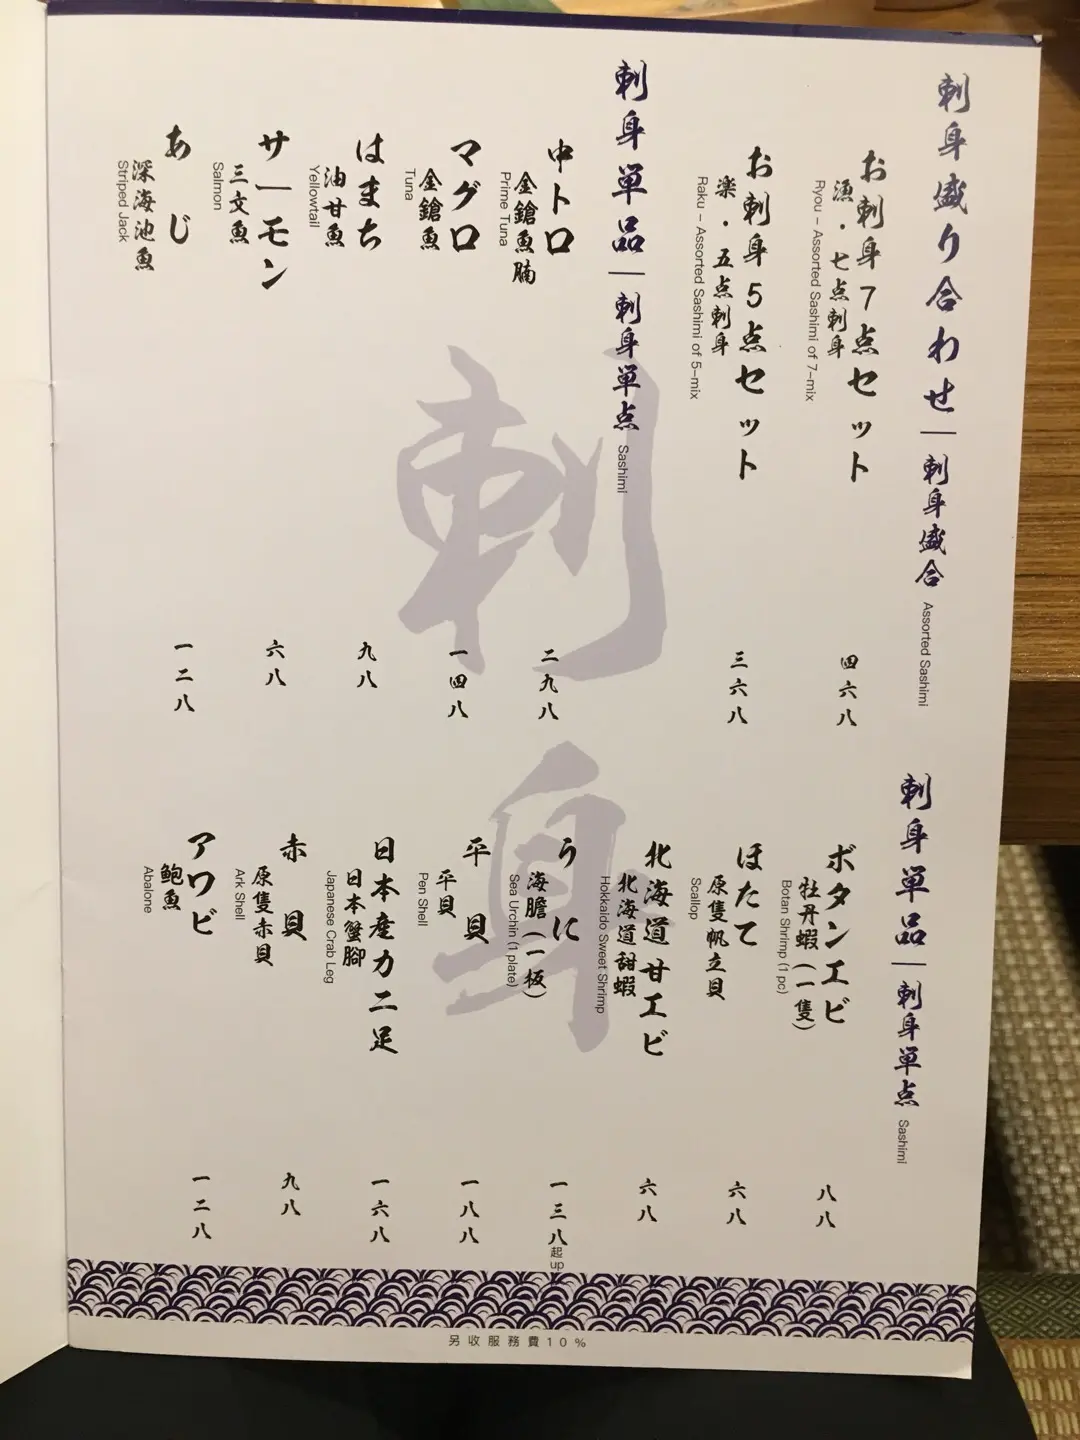 刺身盛り合わせ｜刺身盛合 Assorted Sashimi
お刺身7点セット
漁・七点刺身
Ryou – Assorted Sashimi of 7-mix
四六八
お刺身5点セット
楽・五点刺身
Raku – Assorted Sashimi of 5-mix
三六八
刺身単品｜刺身単点 Sashimi
中トロ
金鎗魚腩
Prime Tuna
二九八
マグロ
金鎗魚
Tuna
一四八
はまち
油甘魚
Yellowtail
九八
サーモン
三文魚
Salmon
六八
あじ
深海池魚
Striped Jack
一二八
刺身単品｜刺身単点 Sashimi
ボタンエビ
牡丹蝦(一隻)
Botan Shrimp (1 pc)
八八
ほたて
原隻帆立貝
Scallop
六八
北海道甘エビ
北海道甜蝦
Hokkaido Sweet Shrimp
六八
うに
海膽(一板)
Sea Urchin (1 plate)
一三八起 up
平貝
平貝
Pen Shell
一八八
日本産カニ足
日本蟹腳
Japanese Crab Leg
一六八
赤貝
原隻赤貝
Ark Shell
九八
アワビ
鮑魚
Abalone
一二八
刺身
另收服務費10%